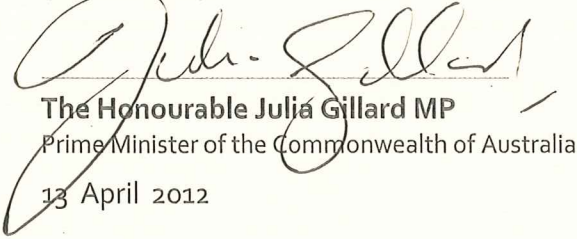 Julia Gillard
The Honourable Julia Gillard MP
Prime Minister of the Commonwealth of Australia
13 April 2012